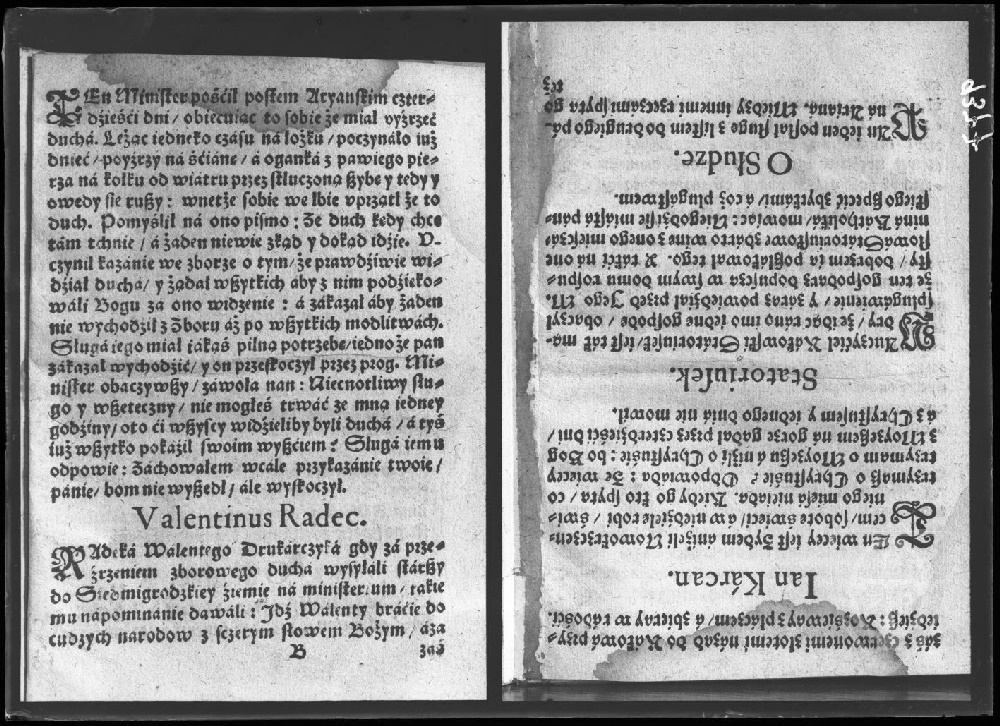 TEn Minister pościł postem Aryanskim czter-
dzieści dni / obiecuiąc to sobie że miał vyźrzeć
ducha. Leżąc iednego czásu ná łożku / poczynáło iuż
dnieć / poyźrzy ná ściánę / á ogánká z páwiego pie-
rza ná kołku od wiátru przez stłuczoną szybę y tedy y
owędy się ruszy : wnetże sobie we łbie vprzątł że to
duch. Pomyślił ná ono pismo : Że duch kędy chce
tám tchnie / á żaden niewie zkąd y dokąd idzie. V-
czynił kazánie we zborze o tym / że prawdźiwie wi-
dźiał duchá / y żądał wszytkich áby z nim podźięko-
wáli Bogu zá ono widzenie : á zákazał áby żaden
nie wychodził z Zboru áż po wszytkich modlitwách.
Sługá iego miał iákąś pilną potrzebę / iedno że pan
zákazał wychodźić / y on przeskoczył przez prog. Mi-
nister obaczywszy / záwoła nań : Niecnotliwy słu-
go y wszeteczny / nie mogłeś trwáć ze mną iedney
godźiny / oto ći wszyscy widźieliby byli duchá / á tyś
iuż wszytko pokáźił swoim wyszćiem ? Sługá iemu
odpowie : Záchowałem wcále przykazánie twoie /
pánie / bom nie wyszedł / ále wyskoczył.
Valentinus Radec.
RAdeká Walentego Drukárczyká gdy zá prze-
źrzeniem zborowego duchá wysyłáli stárszy
do Siedmigrodzkiey źiemie ná ministerium / tákie
mu nápominánie dawáli : Idź Walenty bráćie do
cudzych narodow z szczerym słowem Bożym / áza
B zaś
zaś z czerwonemi złotemi názad do Rákowá przy-
iedźiesz : Rozśieway z płáczem / á zbieray w rádośći.
Ian Kárcan.
TEn więcey iest Żydem ániżeli Nowokrzczeń-
cem / sobotę święći / á w niedźielę robi / świ-
niego mięsá nieiada. Kiedy go kto spyta / co
trzymasz o Chrystuśie ? Odpowiáda : Że więcey
trzymam o Moyzeszu á niźli o Chrystuśie : bo Bog
z Moyzeszem ná gorze gadał przez czterdźieśći dni /
á z Chrystusem iednego dniá nie mowił.
Statoriusek.
NAuczyćiel Rákowski Státoriusek / iest ták mą-
dry / że idąc ráno imo iedne gospodę / obaczył
splugáwienie / y záraz powiedźiał przed Jego M.
że ten gospodarz dopuszcza w swym domu rospu-
sty / dobrze by ią poszlákował tego. A rátić ná one
słowá Státoriusowe zbárto winę z onego mieyszcza-
niná Kátholiká / mowiąc : Niegodźi się miástá páń-
skiego szpećić zbytkámi / á coż plugástwem.
O Słudze.
PAn ieden posłał sługę z listem do drugiego pá-
ná Ariáná. Między innemi rzeczámi spyta go
też
9377